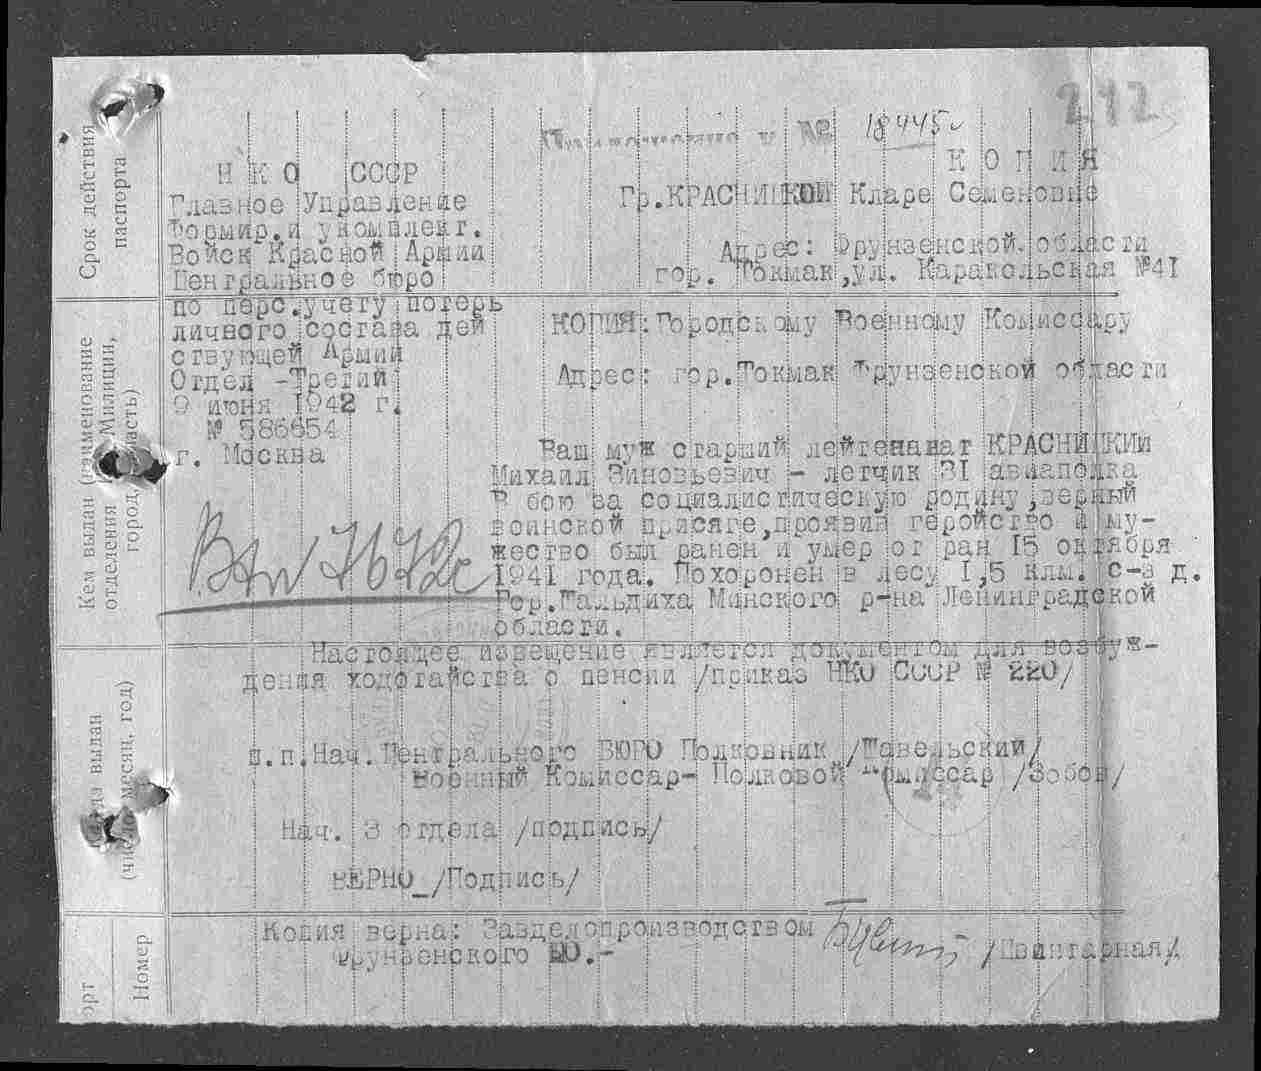 212
18445с
КОПИЯ
НКО СССР
Главное Управление
Формир.и укомплект.
Войск Красной Армии
Центральное бюро
по перс.учету потерь
личного состава дей
ствующей Армии
Отдел -Третий
9 июня 1942 г.
№ 586654
г. Москва
Гр.КРАСНИЦКОЙ Кларе Семеновне
Адрес: Фрунзенской области
гор. Токмак,ул. Каракольская №41
КОПИЯ:Городскому Военному Комиссару
Адрес: гор.Токмак Фрунзенской области
Ваш муж старший лейтенанат КРАСНИЦКИЙ
Михаил Зиновьевич - летчик 31 авиаполка
В бою за социалистическую родину,верный
воинской присяге,проявив геройство и му-
жество был ранен и умер от ран 15 октября
1941 года. Похоронен в лесу 1,5 клм. с-з д.
Гор.Гальдиха Минского р-на Ленинградской
области.
Настоящее извещение является документом для возбуж-
дения ходотайства о пенсии /приказ НКО СССР № 220/
п.п.Нач.Центрального БЮРО Полковник /Шавельский/
Военный Комиссар- Полковой Комиссар /Зобов/
Нач. 3 отдела /подпись/
ВЕРНО_/Подпись/
Копия верна: Завделопроизводством
Фрунзенского ВО.-
/Швингарная/
Срок действия
паспорта
Кем выдан (наименование
отделения Милиции,
город, область)
выдан
(число, месяц, год)
Номер